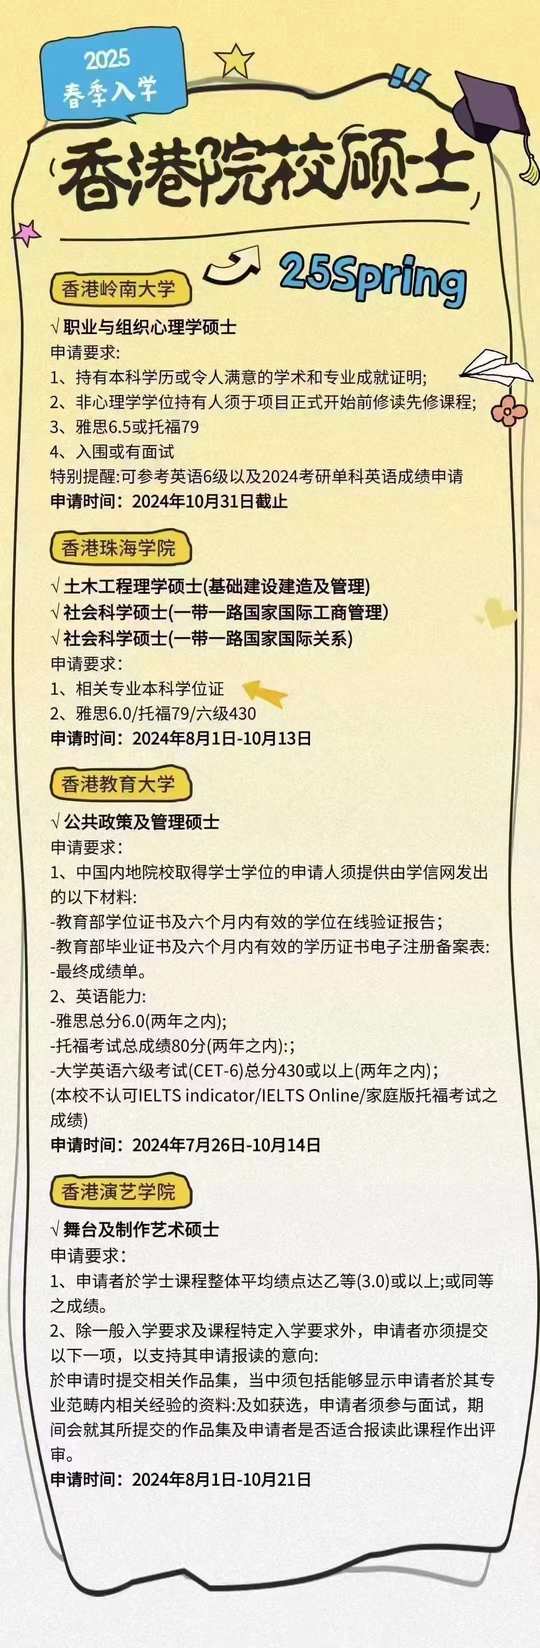 2025
春季入学
香港院校硕士
25Spring
香港岭南大学
√职业与组织心理学硕士
申请要求:
1、持有本科学历或令人满意的学术和专业成就证明;
2、非心理学学位持有人须于项目正式开始前修读先修课程;
3、雅思6.5或托福79
4、入围或有面试
特别提醒:可参考英语6级以及2024考研单科英语成绩申请
申请时间：2024年10月31日截止
香港珠海学院
√土木工程理学硕士(基础建设建造及管理)
√社会科学硕士(一带一路国家国际工商管理）
√社会科学硕士(一带一路国家国际关系)
申请要求：
1、相关专业本科学位证
2、雅思6.0/托福79/六级430
申请时间：2024年8月1日-10月13日
香港教育大学
√公共政策及管理硕士
申请要求：
1、中国内地院校取得学士学位的申请人须提供由学信网发出
的以下材料:
-教育部学位证书及六个月内有效的学位在线验证报告；
-教育部毕业证书及六个月内有效的学历证书电子注册备案表:
-最终成绩单。
2、英语能力:
-雅思总分6.0(两年之内);
-托福考试总成绩80分(两年之内):；
-大学英语六级考试(CET-6)总分430或以上(两年之内)；
(本校不认可IELTS indicator/IELTS Online/家庭版托福考试之
成绩)
申请时间：2024年7月26日-10月14日
香港演艺学院
√舞台及制作艺术硕士
申请要求：
1、申请者於学士课程整体平均绩点达乙等(3.0)或以上;或同等
之成绩。
2、除一般入学要求及课程特定入学要求外，申请者亦须提交
以下一项，以支持其申请报读的意向:
於申请时提交相关作品集，当中须包括能够显示申请者於其专
业范畴内相关经验的资料:及如获选，申请者须参与面试，期
间会就其所提交的作品集及申请者是否适合报读此课程作出评
审。
申请时间：2024年8月1日-10月21日